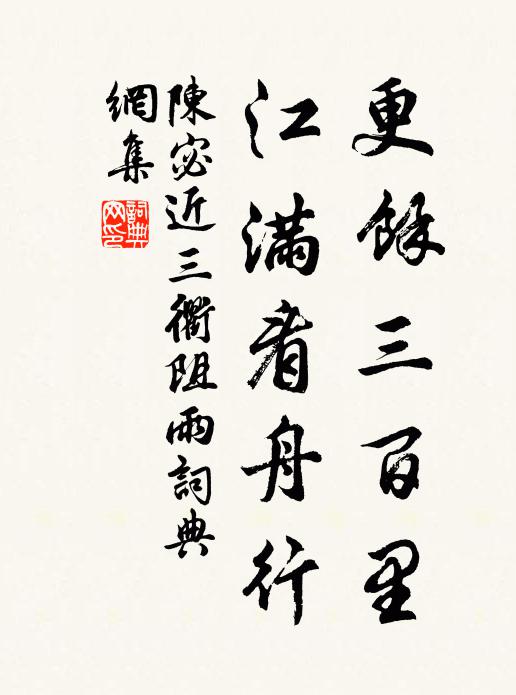 更餘三百里
江滿看舟行
陳宓近三衢阻雨詞典
網集
詞典
网印